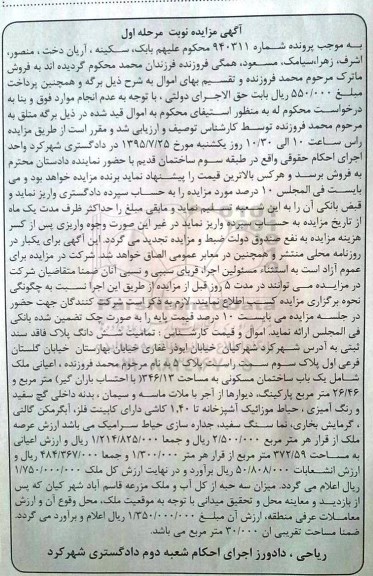 آگهی مزایده نوبت مرحله اول
به موجب پرونده شماره ۹۴۰۳۱۱ محکوم علیهم بابک، سکینه ، آریان دخت ، منصور،
اشرف، زهرا،سیامک، مسعود، همگی فروزنده فرزندان محمد محکوم گردیده اند به فروش
ماترک مرحوم محمد فروزنده و تقسیم بهای اموال به شرح ذیل برگه و همچنین پرداخت
مبلغ ۵۵۰/۰۰۰ ریال بابت حق الاجرای دولتی ، با توجه به عدم انجام موارد فوق و بنا به
درخواست محکوم له به منظور استیفای محکوم به اموال قید شده در ذیل برگه متلق به
مرحوم محمد فروزنده توسط کارشناس توصیف و ارزیابی شد و مقرر است از طریق مزایده
راس ساعت ۱۰ الی ۱۰/۳۰ روز یکشنبه مورخ ۱۳۹۵/۷/۲۵ در دادگستری شهرکرد واحد
اجرای احکام حقوقی واقع در طبقه سوم ساختمان قدیم با حضور نماینده دادستان محترم
به فروش برسد و هرکس بالاترین قیمت را پیشنهاد نماید برنده مزایده خواهد بود و می
بایست فی المجلس ۱۰ درصد مورد مزایده را به حساب سپرده دادگستری واریز نماید و
قبض بانکی آن را به این شعبه تسلیم نماید و مابقی مبلغ را حداکثر ظرف مدت یک ماه
از تاریخ مزایده به حساب سپرده واریز نماید در غیر این صورت وجوه واریزی پس از کسر
هزینه مزایده به نفع صندوق دولت ضبط و مزایده تجدید می گردد. این آگهی برای یکبار در
روزنامه محلی منتشر و همچنین در معابر عمومی الصاق خواهد شد. شرکت در مزایده برای
عموم آزاد است به استثناء مسئولین اجرا، قربای سببی و نسبی آنان ضمنا متقاضیان شرکت
در مزایده می توانند در مدت ۵ روز قبل از مزایده از طریق این اجرا نسبت به چگونگی
نحوه برگزاری مزایده کسب اطلاع نمایند. لازم به ذکر است شرکت کنندگان جهت حضور
در جلسه مزایده می بایست ۱۰ درصد قیمت پایه را به صورت چک تضمین شده بانکی
فی المجلس ارائه نماید. اموال و قیمت کارشناس : تمامیت شش دانگ پلاک فاقد سند
ثبتی به آدرس شهرکرد شهرکیان خیابان ابوذر غفاری خیابان بهارستان خیابان گلستان
فرعی اول پلاک سوم سمت راست پلاک ۵ به نام مرحوم محمد فروزنده ، اعیانی ملک
شامل یک باب ساختمان مسکونی به مساحت ۳۴۶/۱۳ با احتساب باران گیر) متر مربع و
۲۶/۴۶ متر مربع پارکینگ، دیوارها از آجر با ملات ماسه و سیمان ، بدنه داخلی گچ سفید
و رنگ آمیزی ، حیاط موزائیک آشپزخانه تا ۱،۴۰ کاشی دارای کابینت فلز، آبگرمکن گالنی
، گرمایش بخاری، نما سنگ سفید، جداره سازی حیاط سرامیک می باشد ارزش عرصه
ملک از قرار هر متر مربع ۲/۵۰۰/۰۰۰ ریال و جمعا ۱/۲۱۴/۸۲۵/۰۰۰ ریال و ارزش اعیانی
به مساحت ۳۷۲/۵۹ متر مربع از قرار هر متر ۱/۳۰۰/۰۰۰ و جمعا ۴۸۴/۳۶۷/۰۰۰ ریال و
ارزش انشعابات ۵۰/۸۰۸/۰۰۰ ریال برآورد و در نهایت ارزش کل ملک ۱/۷۵۰/۰۰۰/۰۰۰
ریال اعلام می گردد. میزان سه حبه از کل آب و ملک مزرعه قاسم آباد شهر کیان که پس
از بازدید و معاینه محل و تحقیق میدانی با توجه به موقعیت ملک، محل وقوع آن و ارزش
معاملات عرفی منطقه، ارزش آن مبلغ ۱/۳۵۰/۰۰۰/۰۰۰ ریال اعلام و برآورد می گردد.
ضمنا مساحت تقریبی آن ۳۰/۰۰۰ متر مربع می باشد.
ریاحی ، دادورز اجرای احکام شعبه دوم دادگستری شهرکرد